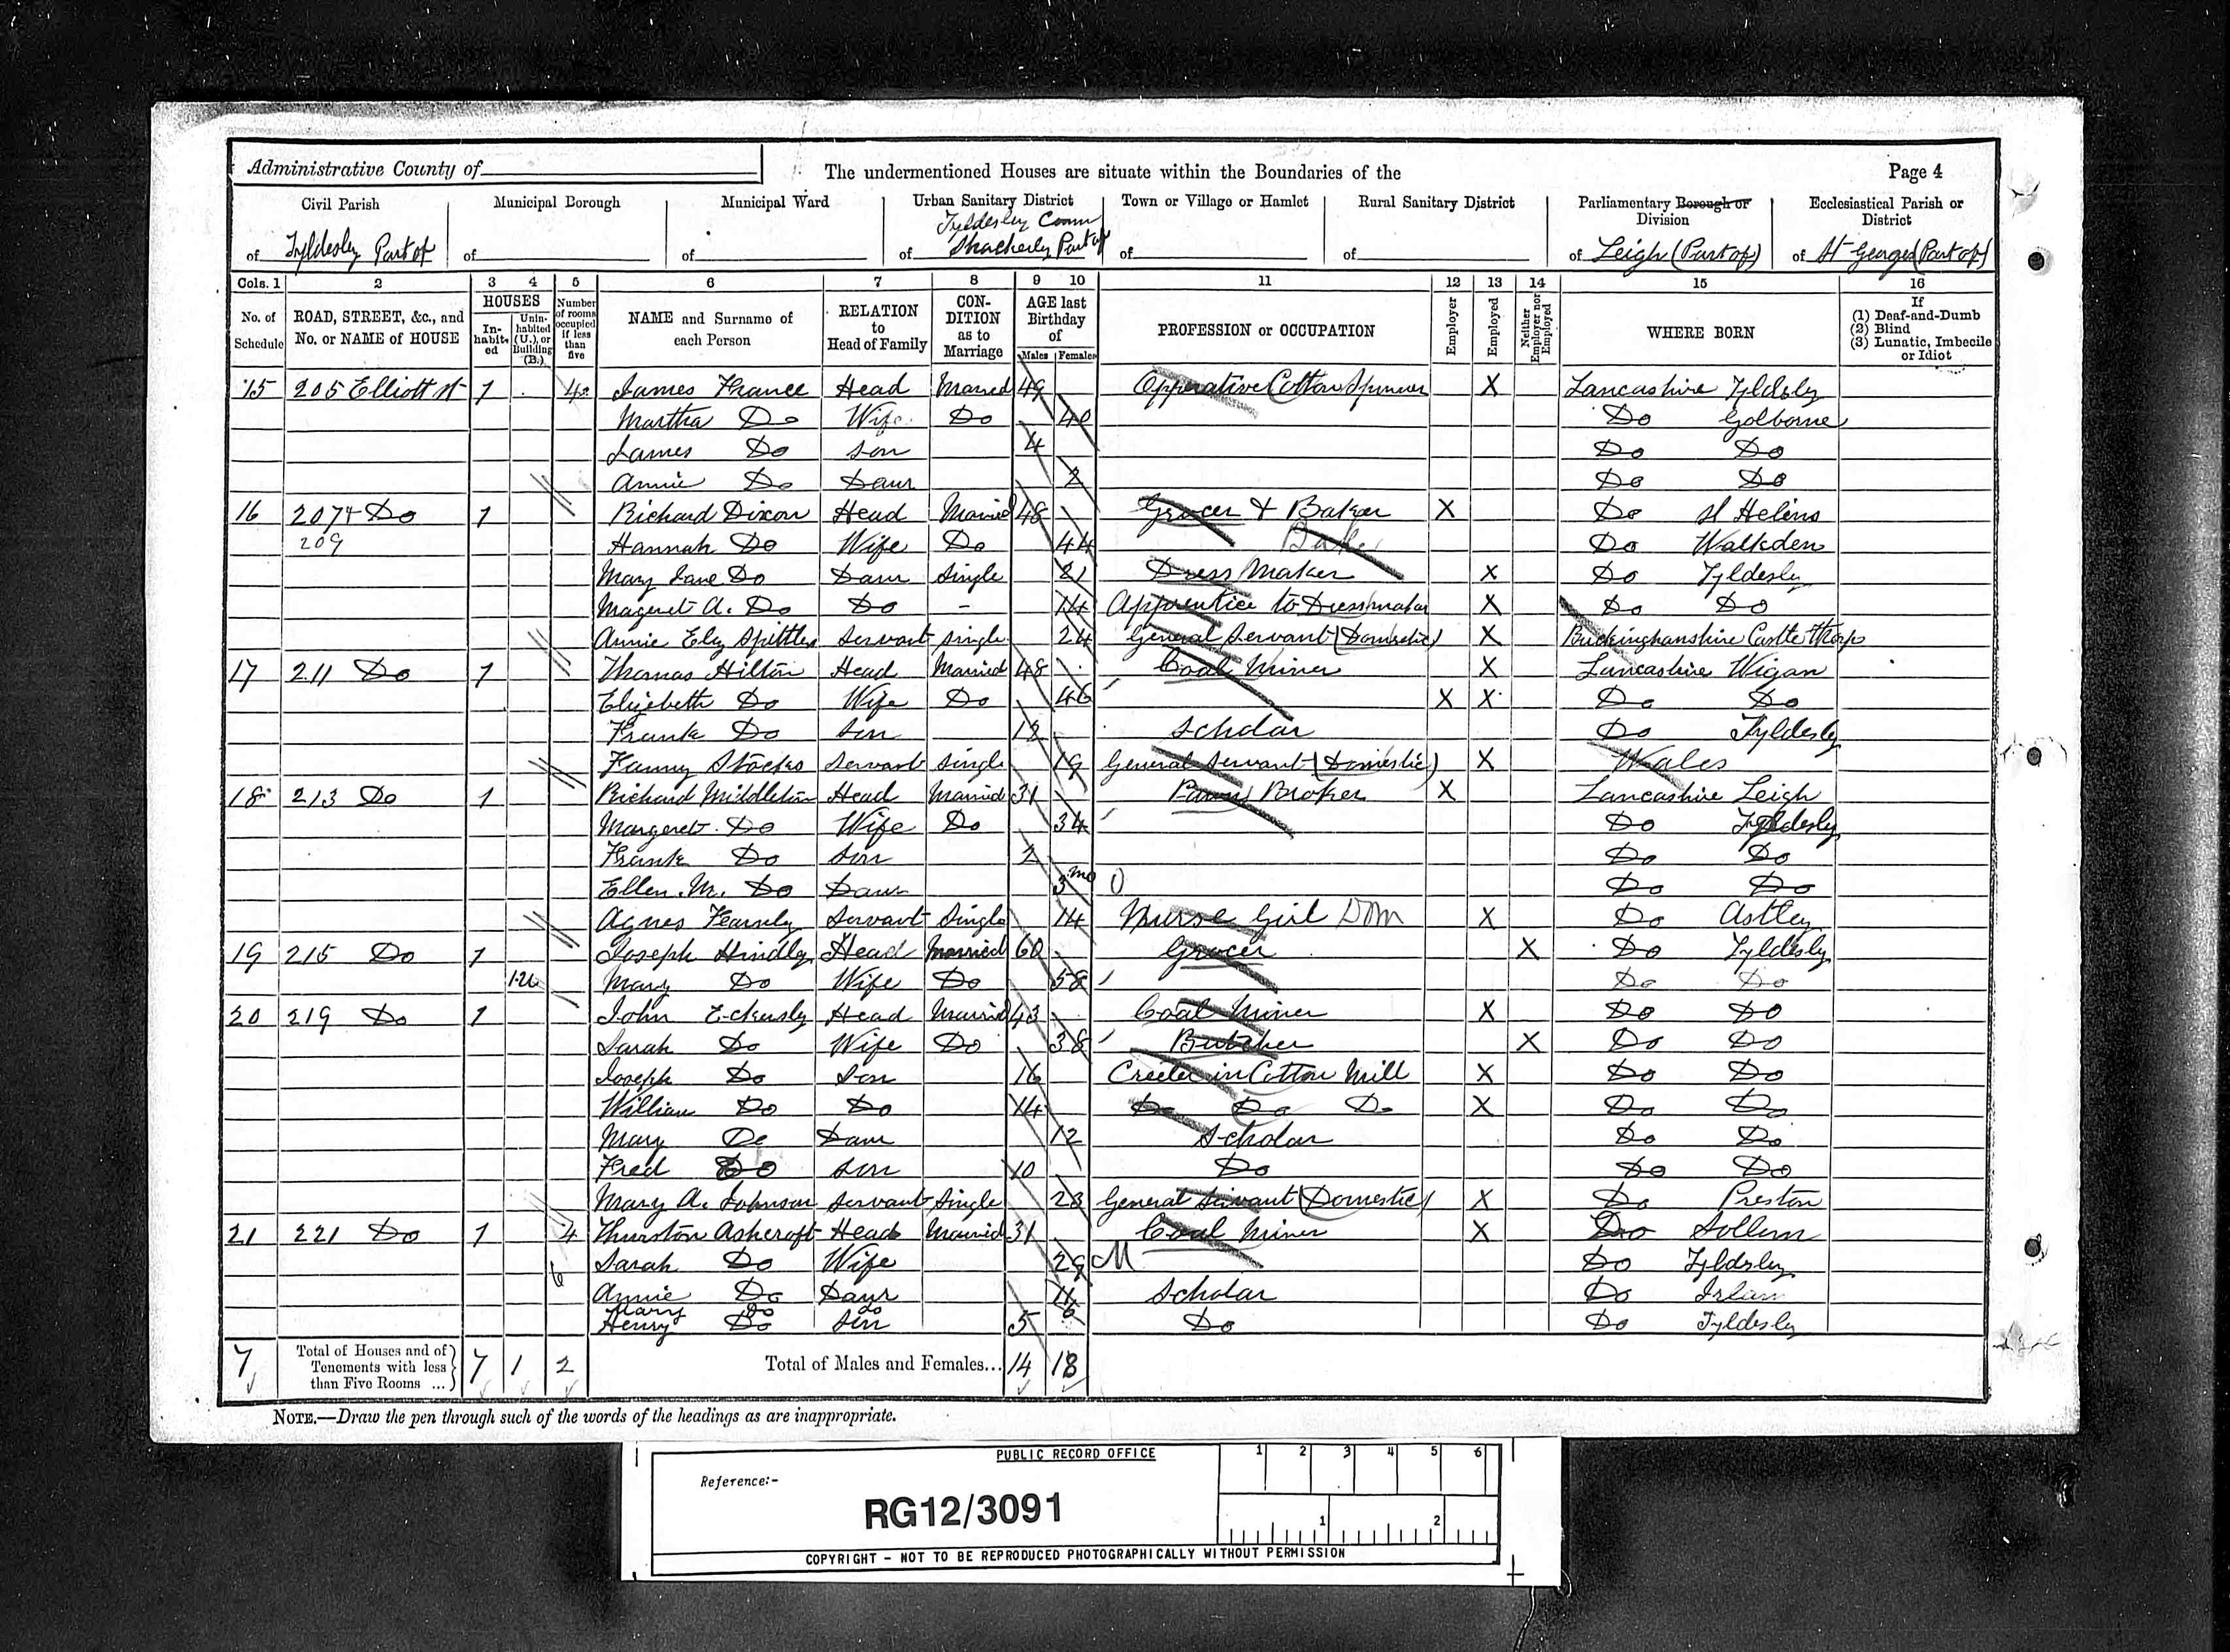 Administrative County of
The undermentioned Houses are situate within the Boundaries of the
Page 4
Civil Parish
of Tyldesley Part of
Municipal Borough
of
Municipal Ward
of
Urban Sanitary District
Tyldesley Comn
of Shackerley Part of
Town or Village or Hamlet
of
Rural Sanitary District
of
Parliamentary Borough or Division
of Leigh (Part of)
Ecclesiastical Parish or District
of St Georges (Part of)
Cols. 1 2 3 4 5 6 7 8 9 10 11 12 13 14 15 16
No. of Schedule
ROAD, STREET, &c., and No. or NAME of HOUSE
HOUSES
In-habit-ed
Unin-habited (U.), or Building (B.)
Number of rooms occupied if less than five
NAME and Surname of each Person
RELATION to Head of Family
CON-DITION as to Marriage
AGE last Birthday of
Males Females
PROFESSION or OCCUPATION
Employer
Employed
Neither Employer nor Employed
WHERE BORN
If
(1) Deaf-and-Dumb
(2) Blind
(3) Lunatic, Imbecile or Idiot
15 205 Elliott St 1 4 James France Head Married 49 Opperative Cotton Spinner X Lancashire Tyldesley
Martha Do Wife Do 40 Do Golborne
James Do Son 4 Do Do
Annie Do Daur 2 Do Do
16 207 + Do 1 Richard Dixon Head Married 48 Grocer & Baker X Do St Helens
209 Hannah Do Wife Do 44 Do Walkden
Mary Jane Do Daur Single 21 Dress Maker X Do Tyldesley
Mageret A. Do Do - 14 Apprentice to Dressmaker X Do Do
Annie Eliz Spittles Servant Single 24 General Servant (Domestic) X Buckinghamshire Castle Thorp
17 211 Do 1 Thomas Hilton Head Married 48 Coal Miner X Lancashire Wigan
Elizebeth Do Wife Do 46 X X Do Do
Frank Do Son 12 Scholar Do Tyldesley
Fanny Stocks Servant Single 19 General Servant (Domestic) X Wales
18 213 Do 1 Richard Middleton Head Married 31 Pawn Broker X Lancashire Leigh
Margeret Do Wife Do 34 Do Tyldesley
Frank Do Son 2 Do Do
Ellen M. Do Daur 3 mo Do Do
Agnes Fearnly Servant Single 14 Nurse Girl Dom X Do Astley
19 215 Do 1 Joseph Hindley Head Married 60 Grocer X Do Tyldesley
1-U Mary Do Wife Do 58 Do Do
20 219 Do 1 John Eckersley Head Married 43 Coal Miner X Do Do
Sarah Do Wife Do 38 Butcher X Do Do
Joseph Do Son 16 Creeler in Cotton Mill X Do Do
William Do Do 14 Do Do Do X Do Do
Mary Do Daur 12 Scholar Do Do
Fred Do Son 10 Do Do Do
Mary A. Johnson Servant Single 23 General Servant (Domestic) X Do Preston
21 221 Do 1 4 Thurston Ashcroft Head Married 31 Coal Miner X Do Sollem
6 Sarah Do Wife 29 M Do Tyldesley
Annie Do Daur 11 Scholar Do Irlam
Mary Do do 6
Henry Do Son 5 Do Do Tyldesley
7 Total of Houses and of Tenements with less than Five Rooms ... 7 1 2 Total of Males and Females... 14 18
NOTE.—Draw the pen through such of the words of the headings as are inappropriate.
PUBLIC RECORD OFFICE
1 2 3 4 5 6
Reference:-
RG12/3091
1 2
COPYRIGHT - NOT TO BE REPRODUCED PHOTOGRAPHICALLY WITHOUT PERMISSION